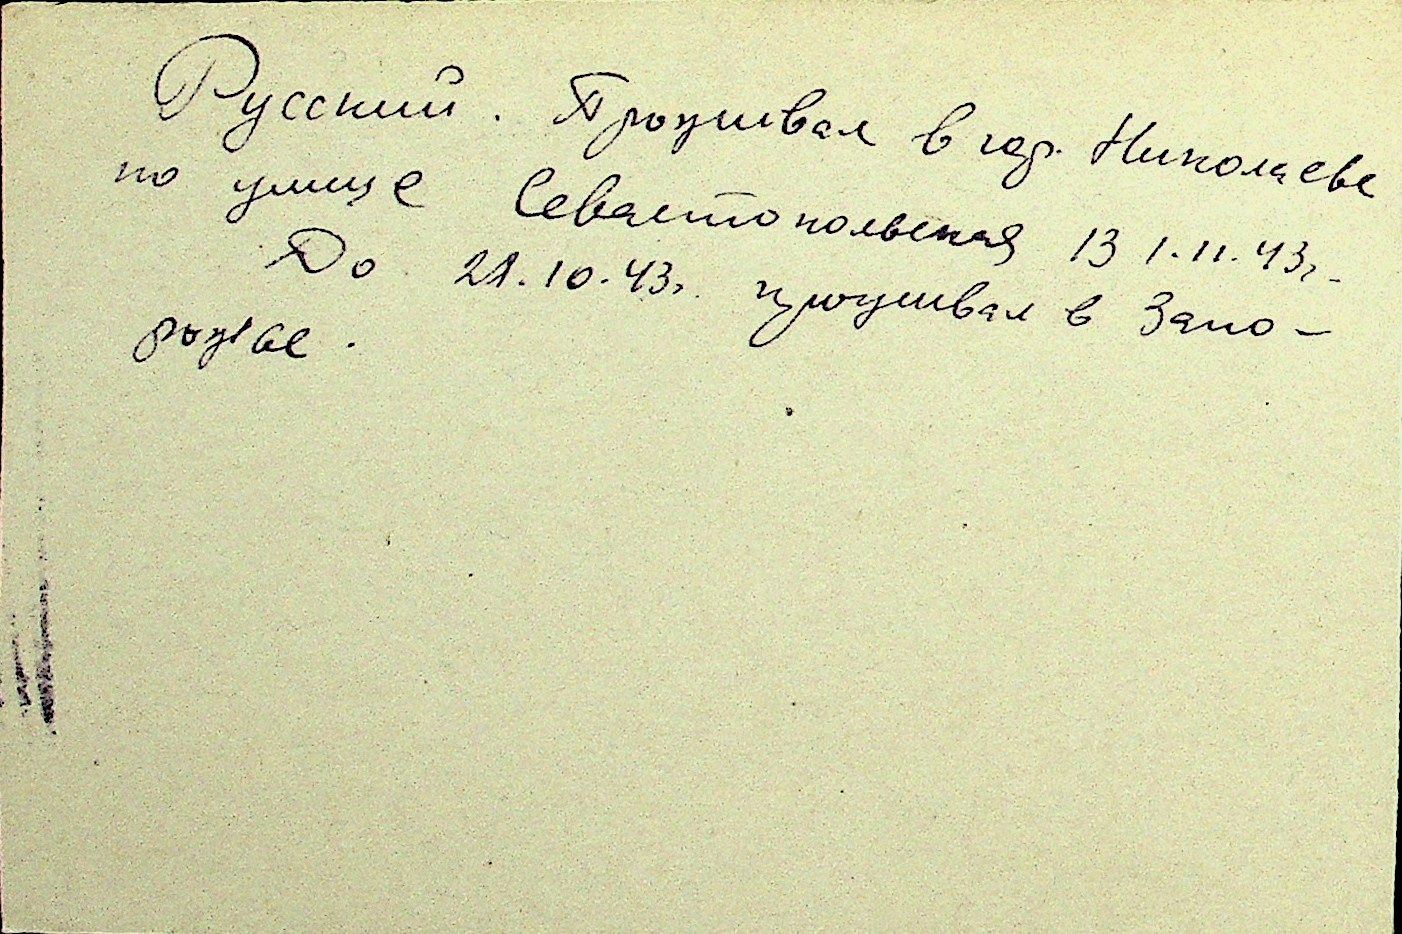 Русский. Проживал в гор. Николаеве
по улице Севастопольская 13 1.11.43г.
До 21.10.43г. проживал в Запо-
рожье.